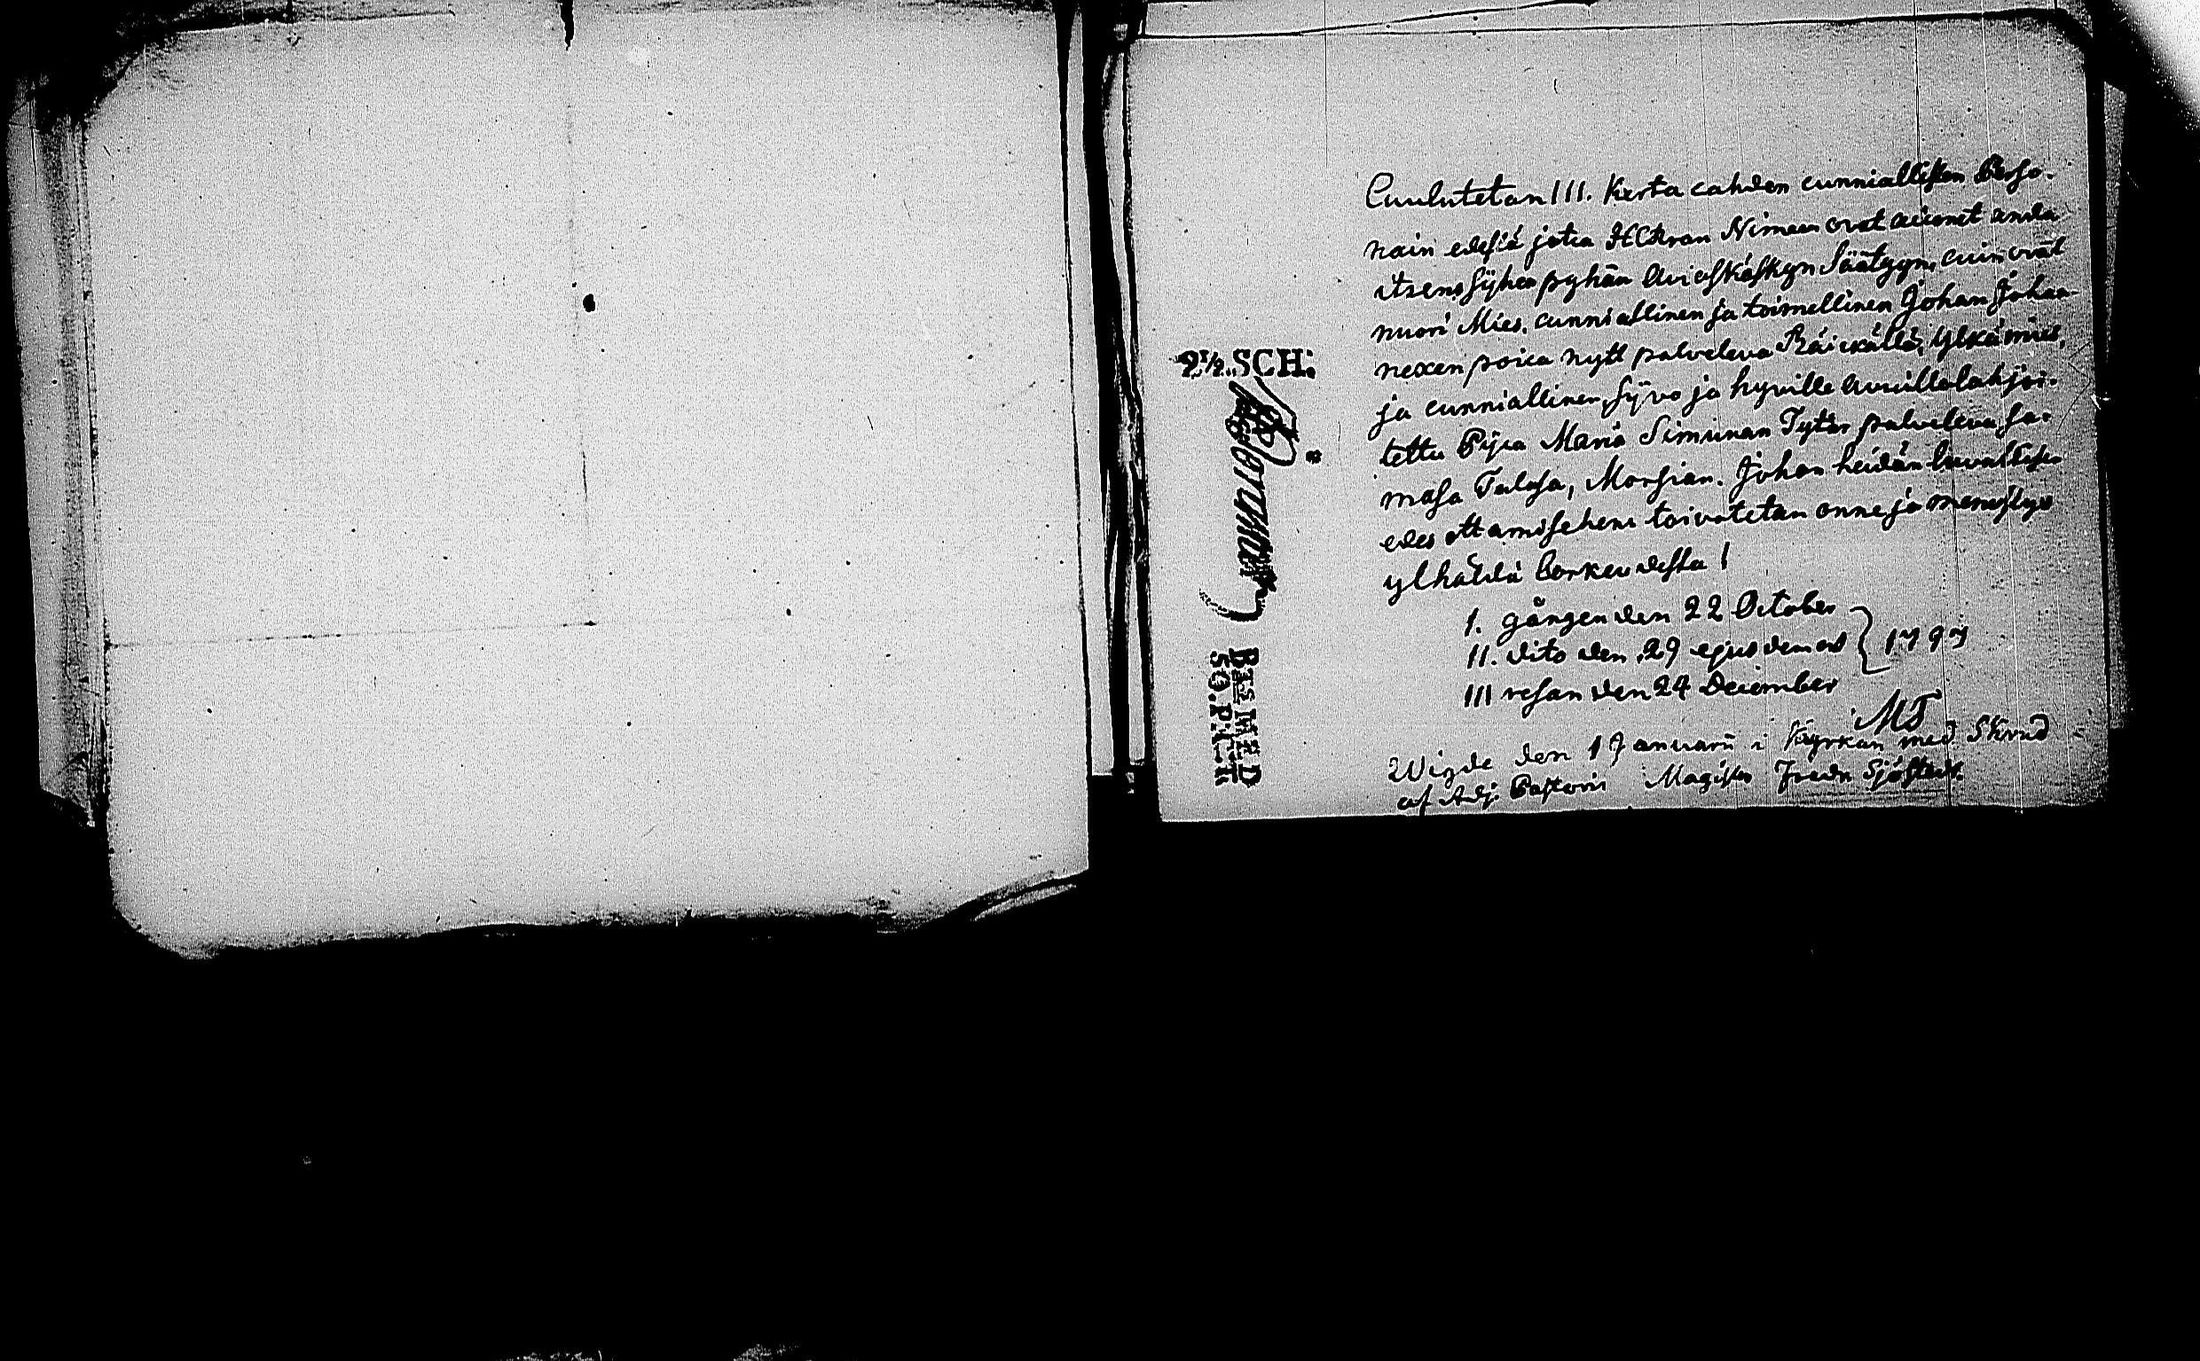 Cuulutetan III. Kerta cahden cunniallisen Perso-
nain edesä jotca HERran Nimeen ovat aiconet anda
itzens sijhen pyhän Aviaskäskyn Säätyyn, cuin ovat
nuori Mies. cunniallinen ja toimellinen Johan Johan-
nexen poica nytt palveleva Räickälä, ylkämies,
ja cunniallinen, sijvo ja hyville avuilla lahjoi-
tettu Pijca Maria Simunan Tytär palveleva sa-
masa Talosa, Morsian. Johon heidän luvallisen
edes ottamisehens toivotetan onne ja menestys
ylhäldä Corkeudesta!
I. gången den 22 October
II. dito den 29 ejusdem
III resan den 24 December
1797
MT
Wigde den 1 Januarii i Kyrkan med Skrud
af Adj. Pastoris Magister Fredr Sjöstedt.
2½ SCH:
BEs MED
SG.PILT